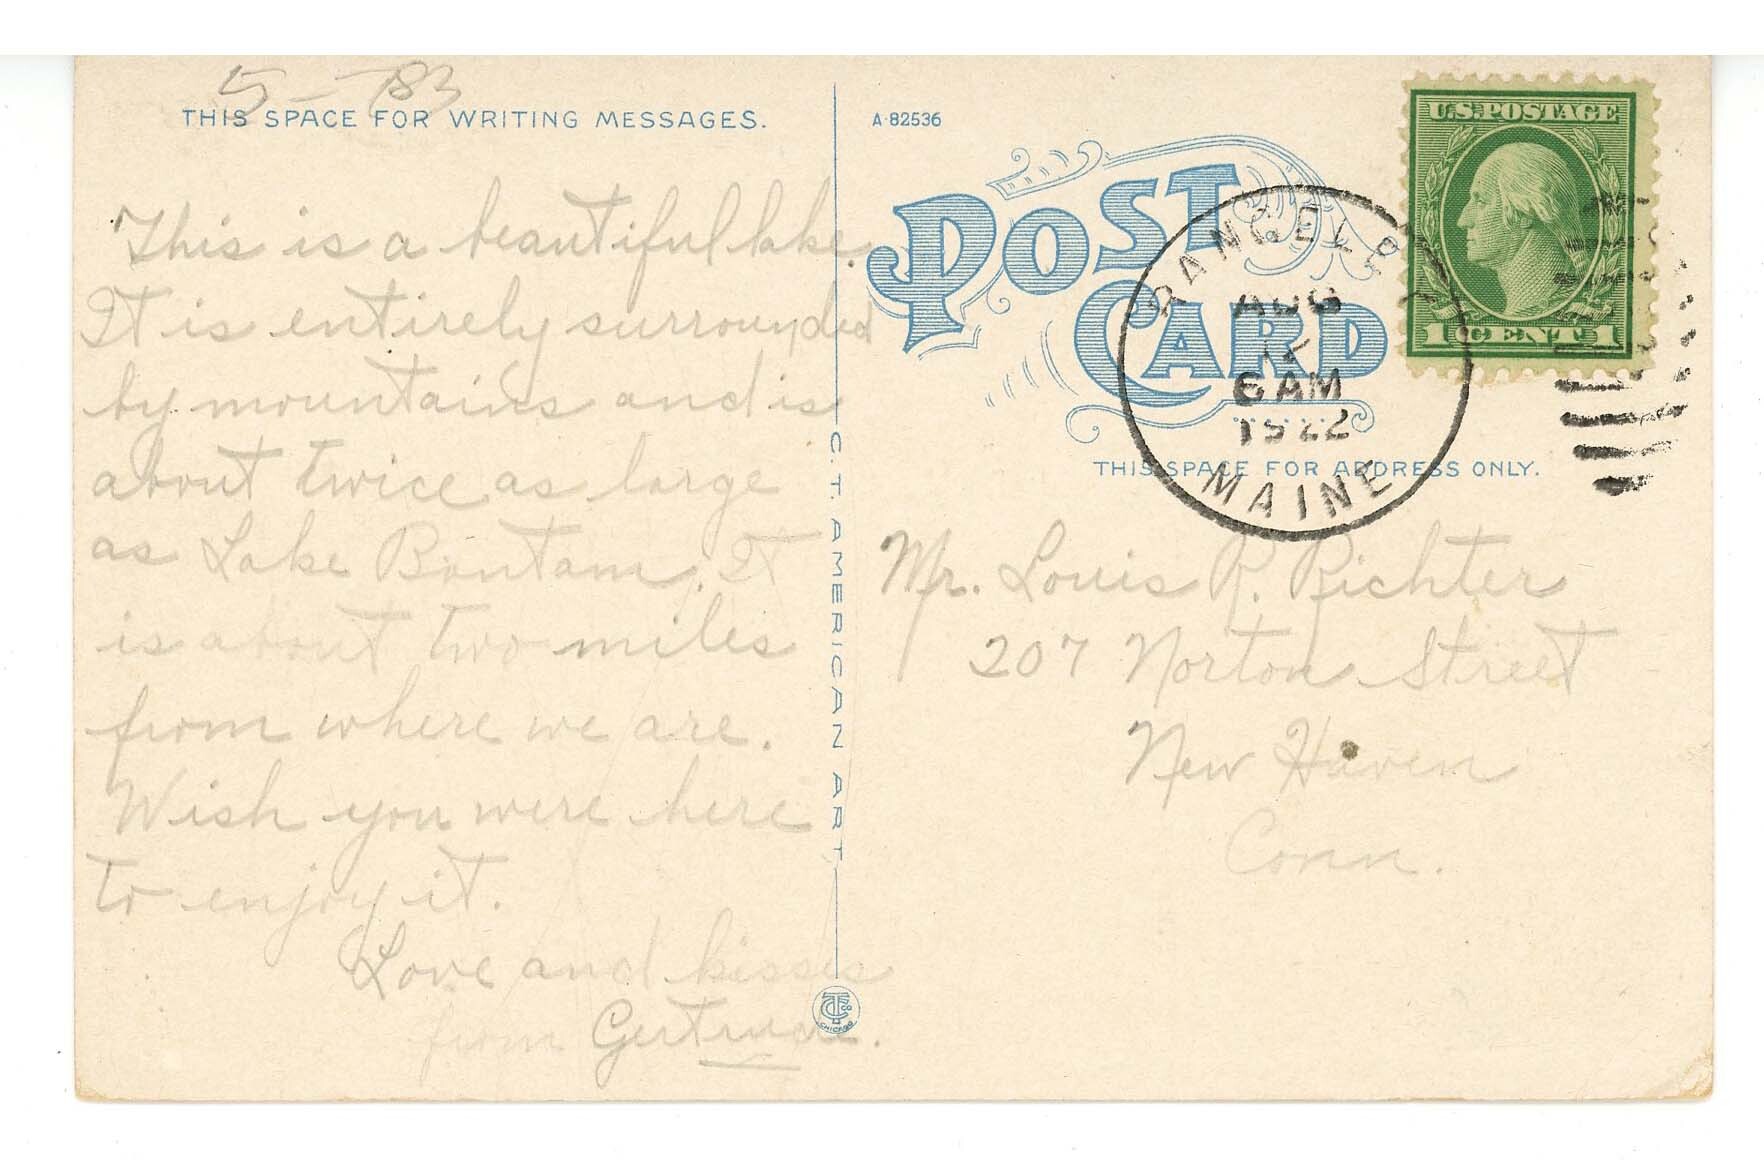 5-783
THIS SPACE FOR WRITING MESSAGES.
This is a beautiful lake.
It is entirely surrounded
by mountains and is
about twice as large
as Lake Bantam. It
is about two miles
from where we are.
Wish you were here
to enjoy it.
Love and kisses
from Gertrude.
C. T. AMERICAN ART
CHICAGO
A-82536
POST
CARD
U.S. POSTAGE
1 CENT 1
RANGELEY
AUG
6 AM
1922
MAINE
THIS SPACE FOR ADDRESS ONLY.
Mr. Louis R. Richter
207 Norton Street
New Haven
Conn.